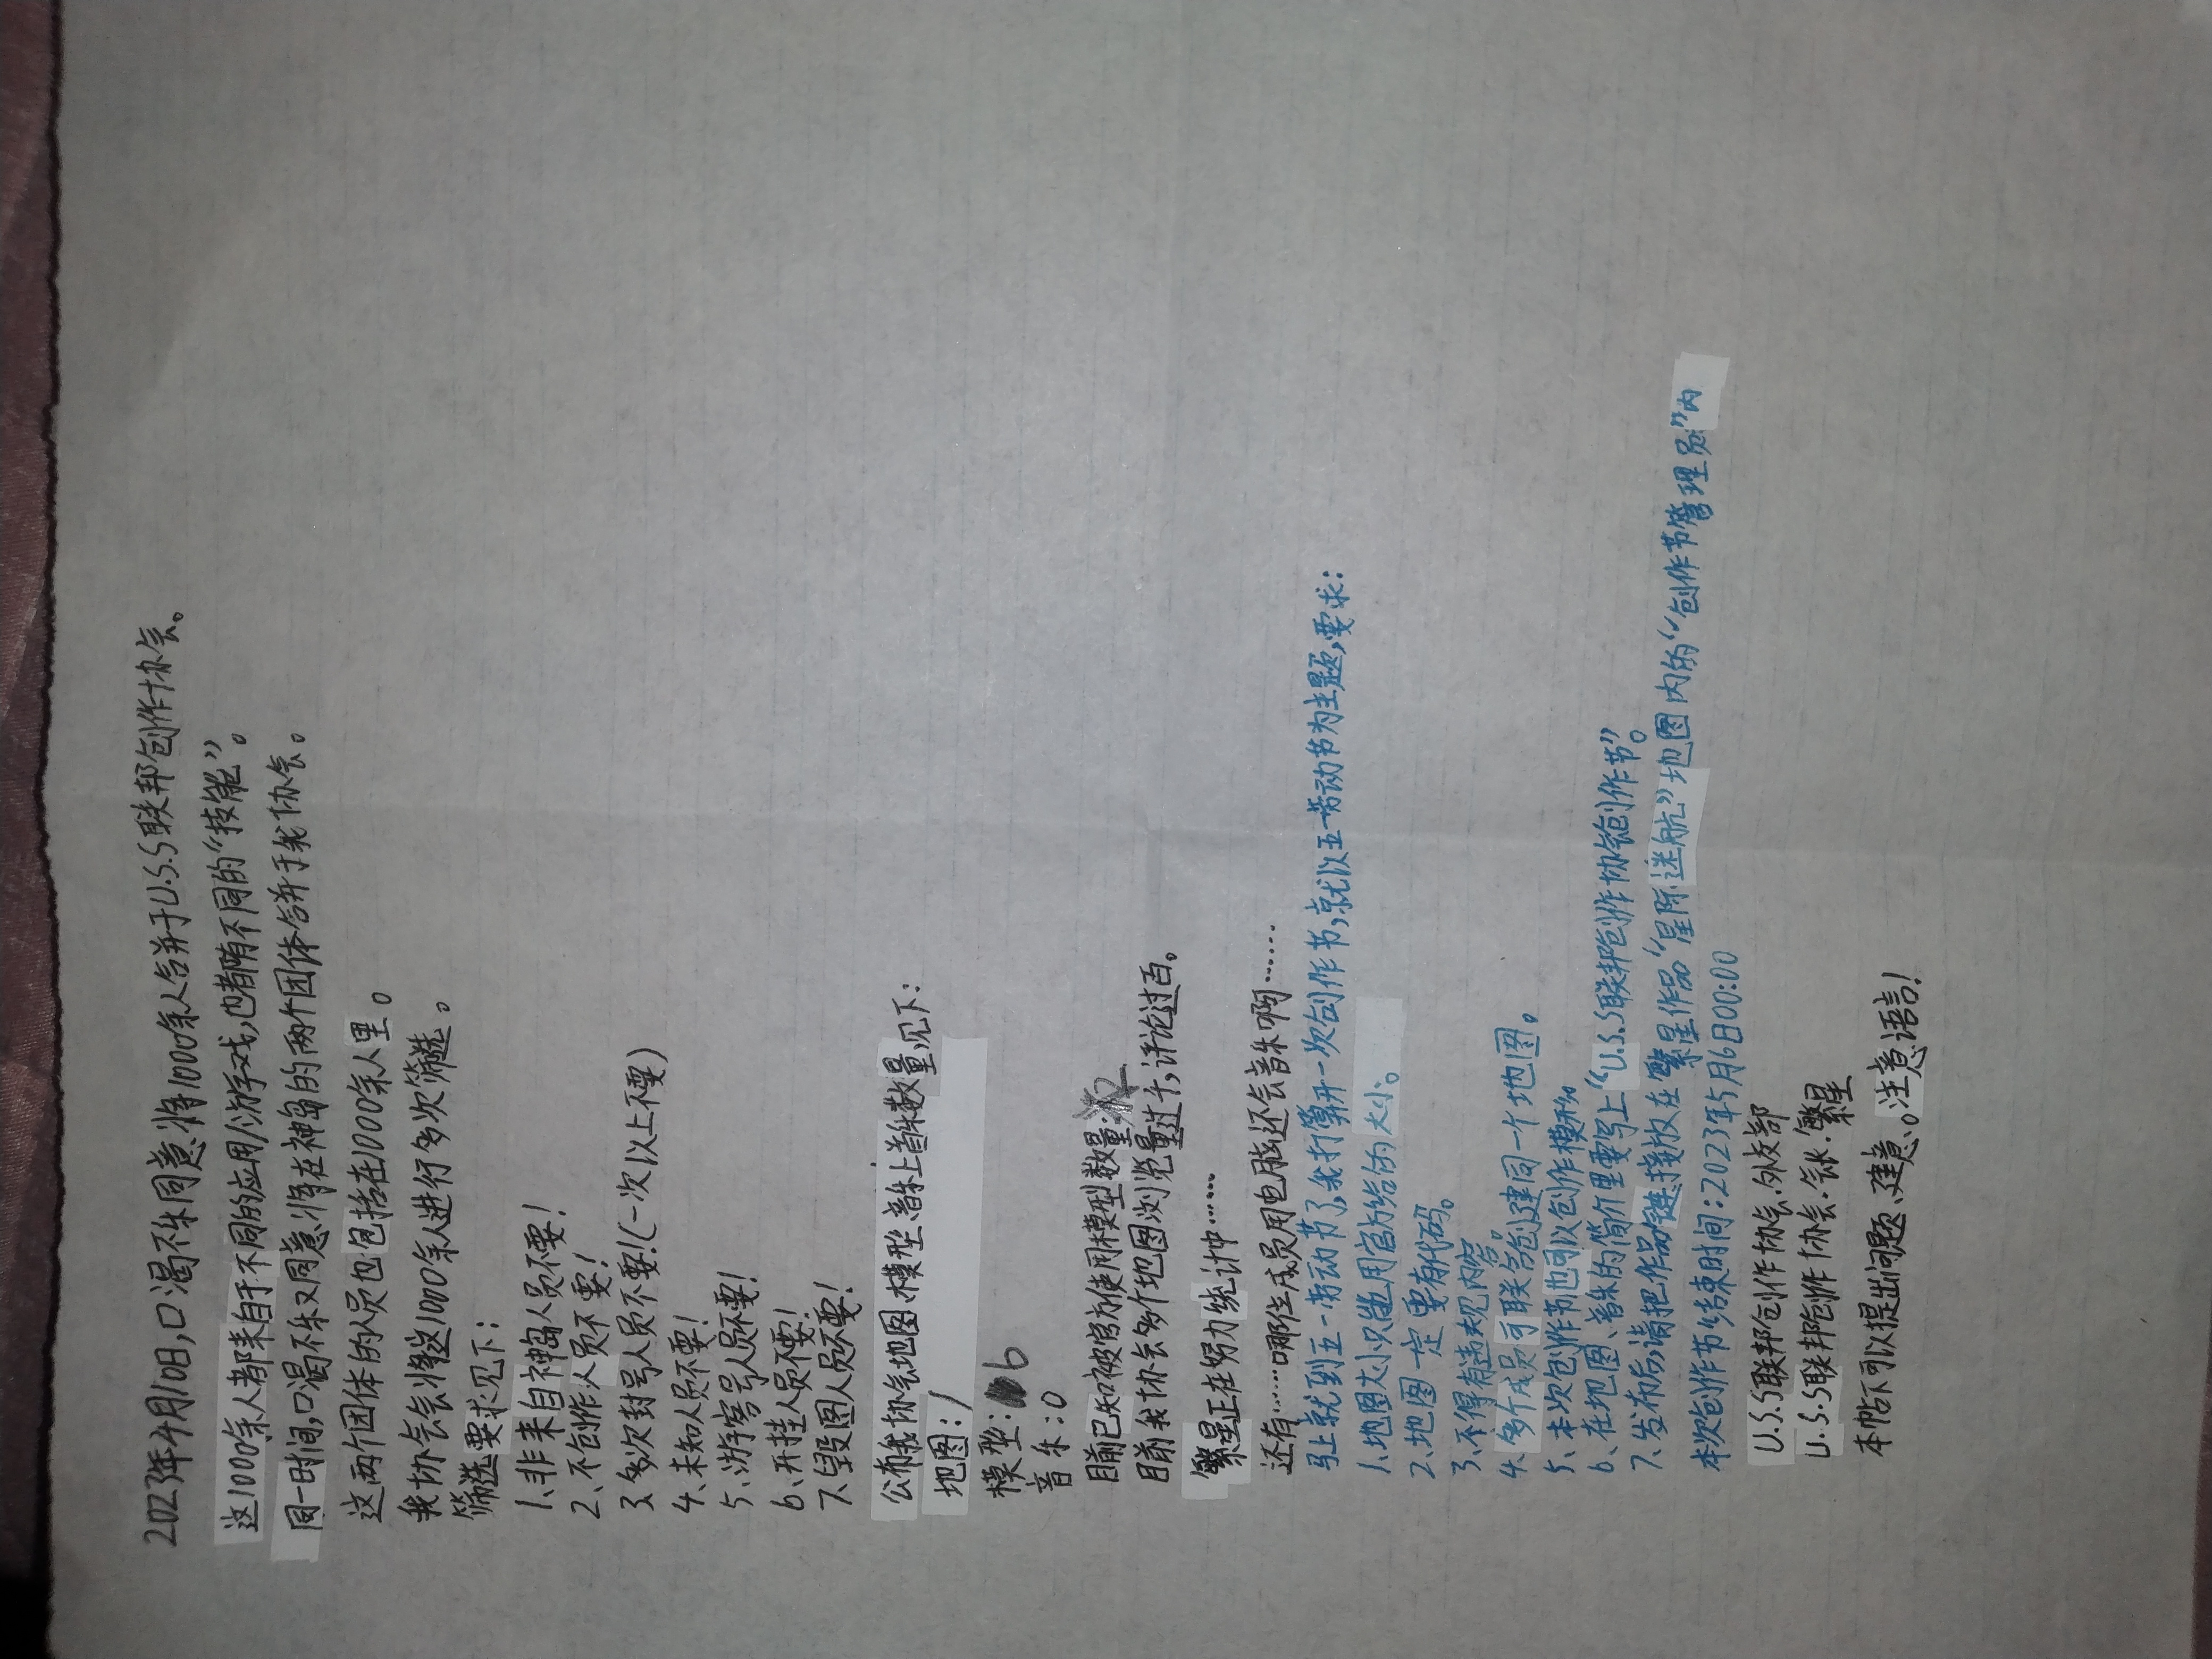 2023年4月10日,口渴不朱同意将1000余人合并于U.S.S联邦创作协会。
这1000余人都来自于不同的应用/游戏,也都有不同的“技能”。
同一时间,口渴不朱又同意将在神岛的两个团体合并于我协会。
这两个团体的人员也包括在1000余人里。
我协会会将这1000余人进行多次筛选。
筛选要求见下:
1、非来自神岛人员不要!
2、不创作人员不要!
3、多次封号人员不要!(一次以上不要)
4、未知人员不要!
5、游客号人员不要!
6、开挂人员不要!
7、毁图人员不要!
公布我协会地图、模型、音乐上首乐数量,见下:
地图:1
模型:6
音乐:0
目前已知被官方使用模型数量:
目前我协会多个地图浏览量过千,评论过百。
繁星正在努力统计中……
还有……哪位成员用电脑还会音乐啊……
马上就到五一劳动节了,我打算开一次创作节,就以五一劳动节为主题,要求:
1、地图大小只能用官方给的大小。
2、地图一定要有代码。
3、不得有违规内容。
4、多个成员可联名创建同一个地图。
5、本次创作节也可以创作模型。
6、在地图、音乐的简介里要写上“U.S.S联邦创作协会创作节”。
7、发布后,请把作品链接放在繁星作品“星际迷航”地图内的“创作节管理员”内
本次创作节结束时间:2023年5月6日00:00
U.S.S联邦创作协会.外交部
U.S.S联邦创作协会.会长.繁星
本帖下可以提出问题、建意。注意语言!